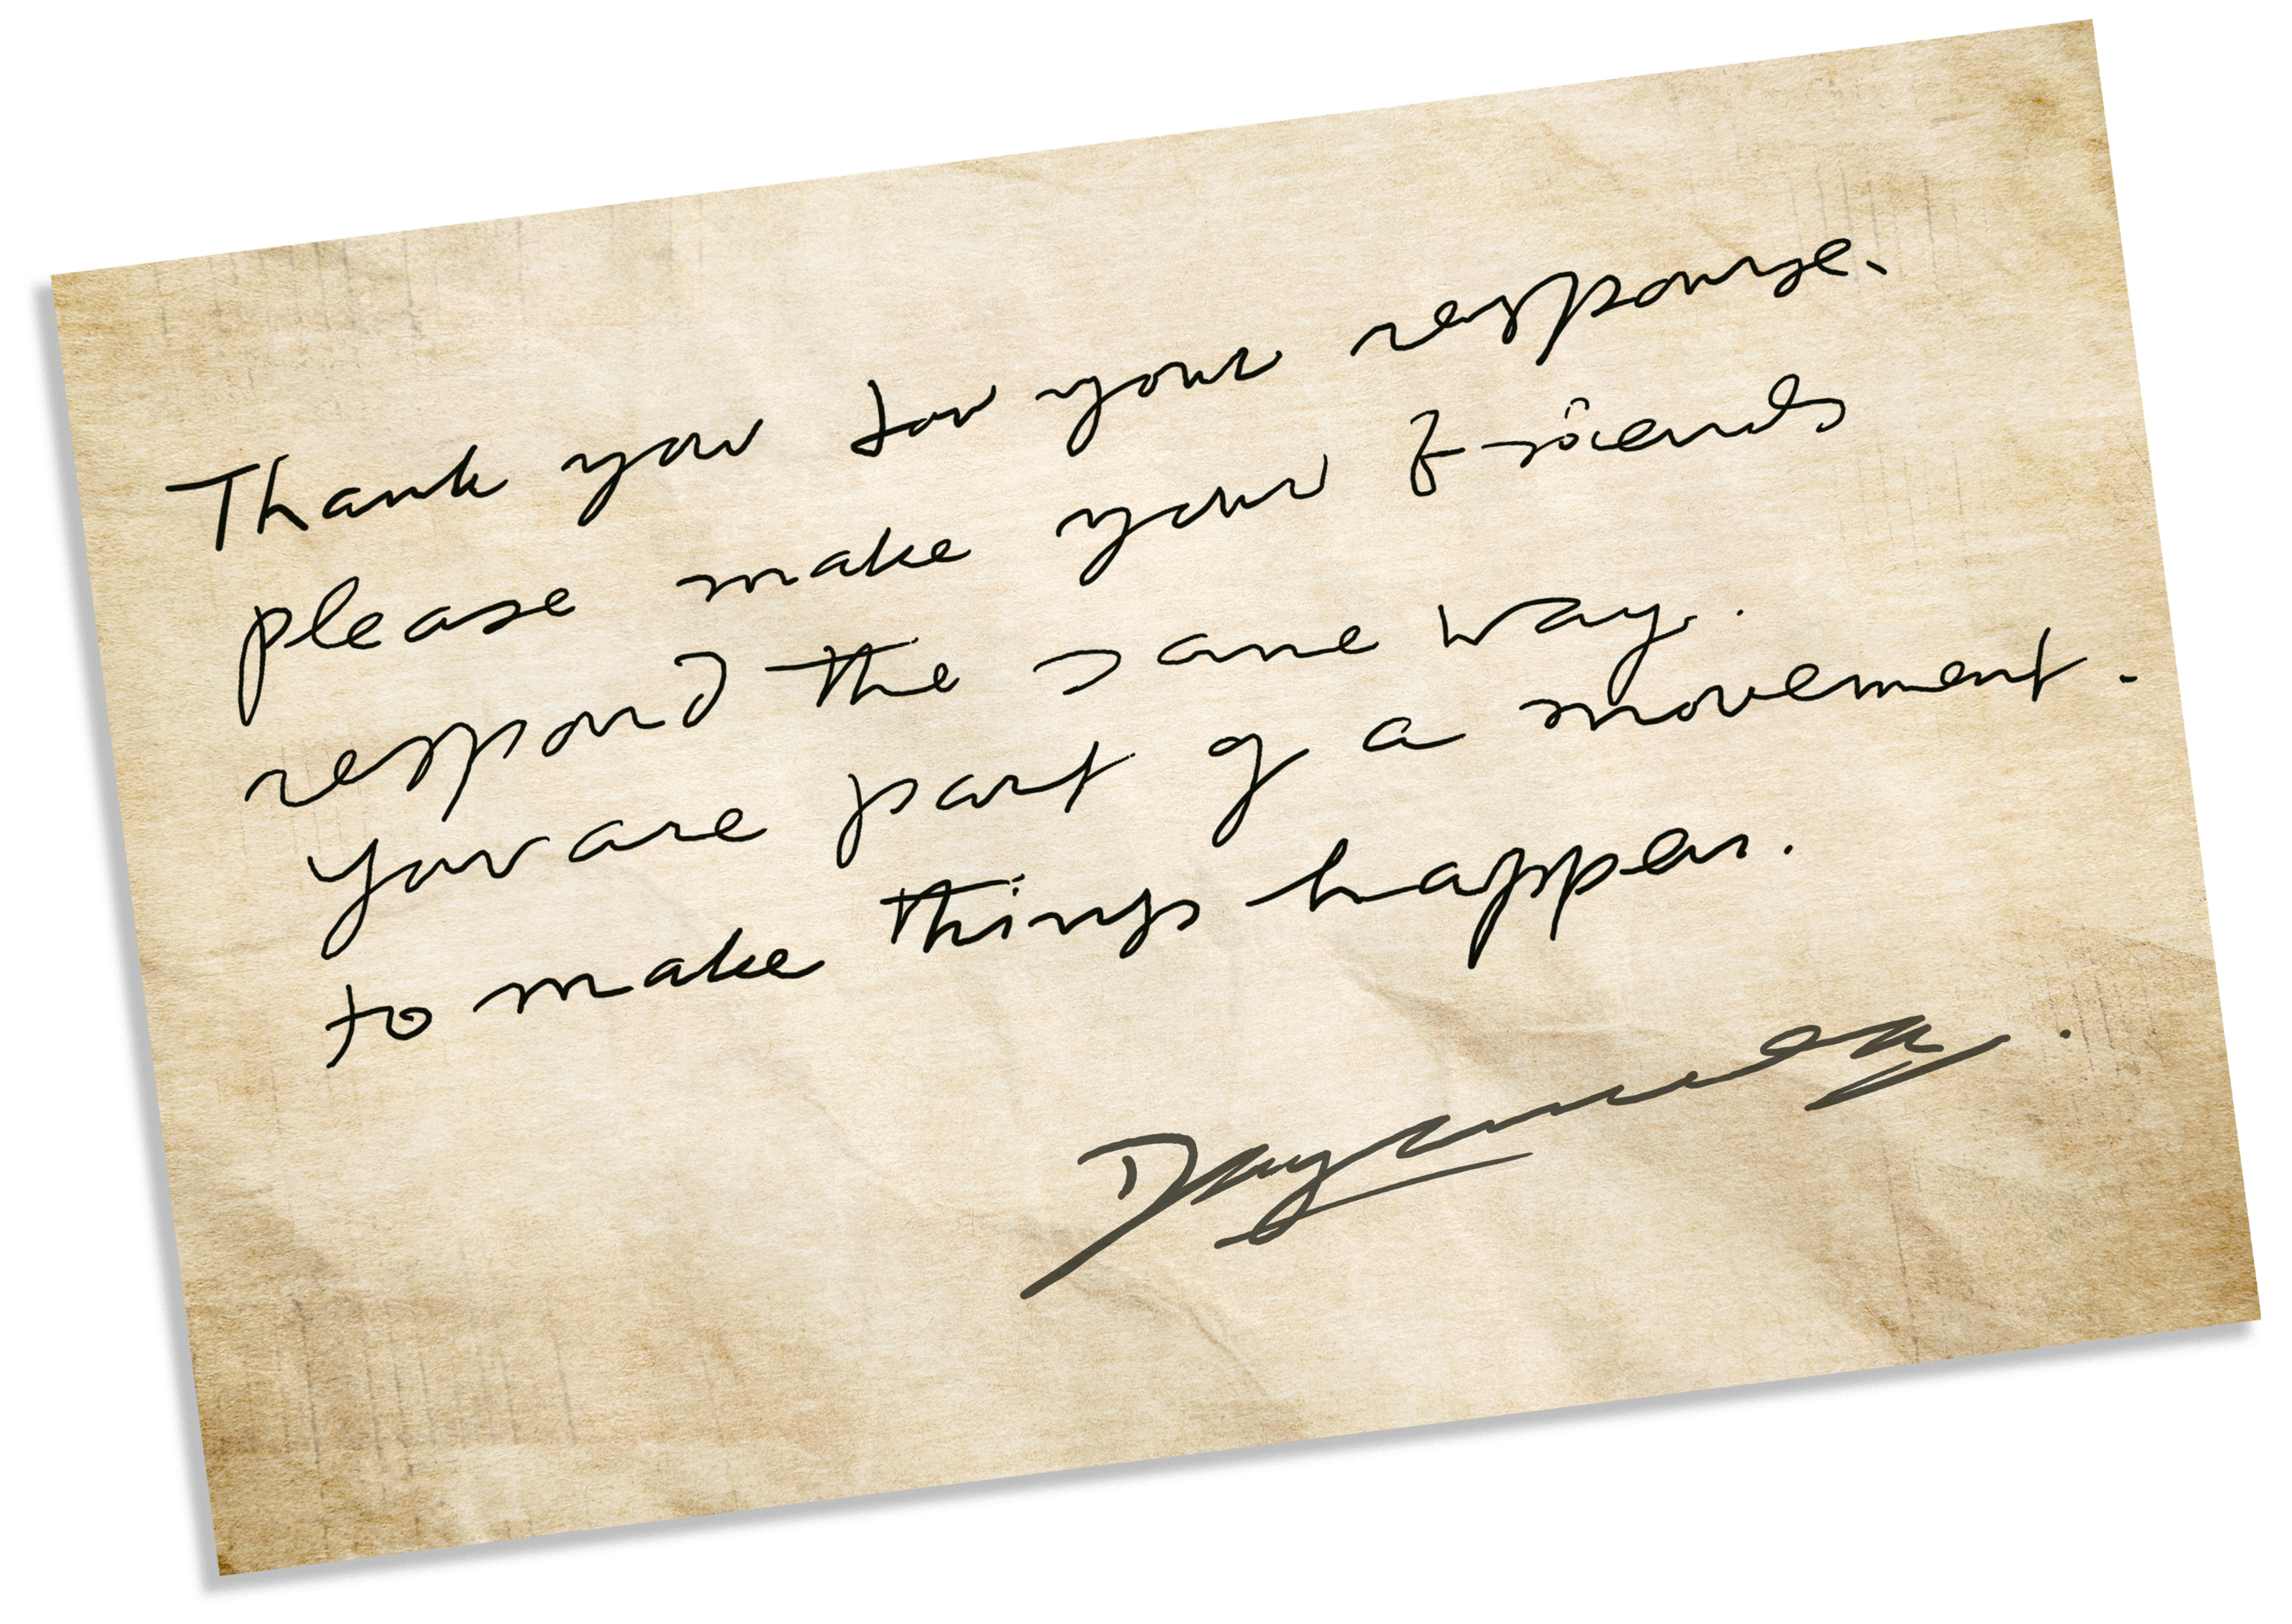 Thank you for your response.
please make your friends
respond the same way.
You are part of a movement.
to make things happen.